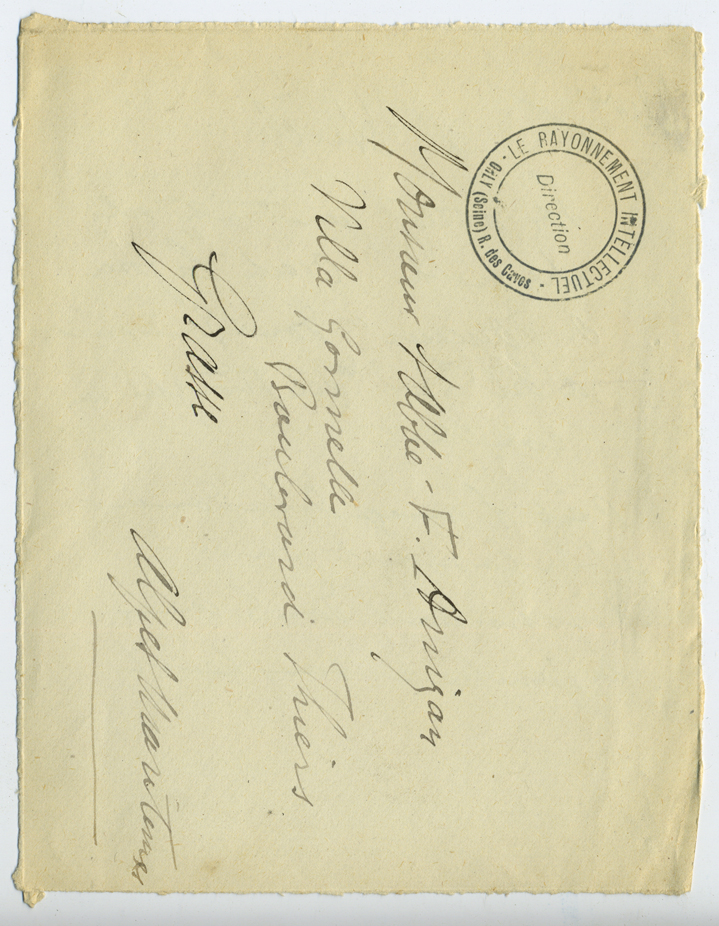 LE RAYONNEMENT INTELLECTUEL -
ORLY (Seine) R. des Caves -
Direction
Monsieur l'Abbé F. Arrigan
Villa Gornella
Boulevard Thiers
Grasse
Alpes Maritimes